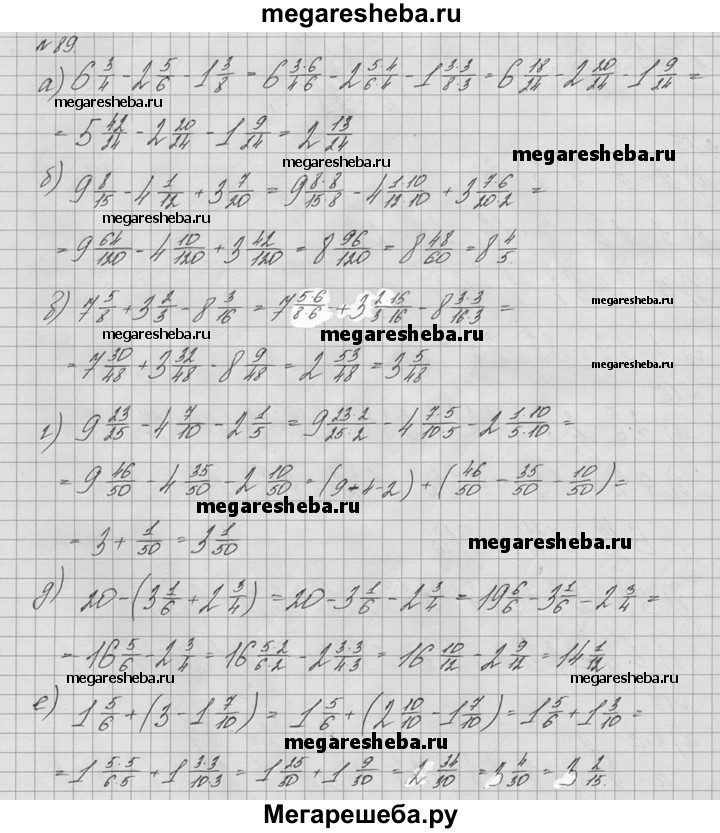 megaresheba.ru
№ 89.
а) 6 3/4 - 2 5/6 - 1 3/8 = 6 3·6/4·6 - 2 5·4/6·4 - 1 3·3/8·3 = 6 18/24 - 2 20/24 - 1 9/24 =
megaresheba.ru megaresheba.ru
= 5 42/24 - 2 20/24 - 1 9/24 = 2 13/24
megaresheba.ru megaresheba.ru
б) 9 8/15 - 4 1/12 + 3 7/20 = 9 8·8/15·8 - 4 1·10/12·10 + 3 7·6/20·2 =
megaresheba.ru
= 9 64/120 - 4 10/120 + 3 42/120 = 8 96/120 = 8 48/60 = 8 4/5.
в) 7 5/8 + 3 2/3 - 8 3/16 = 7 5·6/8·6 + 3 2·16/3·16 - 8 3·3/16·3 =
megaresheba.ru megaresheba.ru megaresheba.ru
= 7 30/48 + 3 32/48 - 8 9/48 = 2 53/48 = 3 5/48
megaresheba.ru
г) 9 23/25 - 4 7/10 - 2 1/5 = 9 23·2/25·2 - 4 7·5/10·5 - 2 1·10/5·10 =
= 9 46/50 - 4 35/50 - 2 10/50 = (9-4-2) + (46/50 - 35/50 - 10/50) =
megaresheba.ru
= 3 + 1/50 = 3 1/50
megaresheba.ru
д) 20 - (3 1/6 + 2 3/4) = 20 - 3 1/6 - 2 3/4 = 19 6/6 - 3 1/6 - 2 3/4 =
= 16 5/6 - 2 3/4 = 16 5·2/6·2 - 2 3·3/4·3 = 16 10/12 - 2 9/12 = 14 1/12
megaresheba.ru
е) 1 5/6 + (3 - 1 7/10) = 1 5/6 + (2 10/10 - 1 7/10) = 1 5/6 + 1 3/10 =
megaresheba.ru
= 1 5·5/6·5 + 1 3·3/10·3 = 1 25/30 + 1 9/30 = 2 34/30 = 3 4/30 = 3 2/15.
Мегарешеба.ру